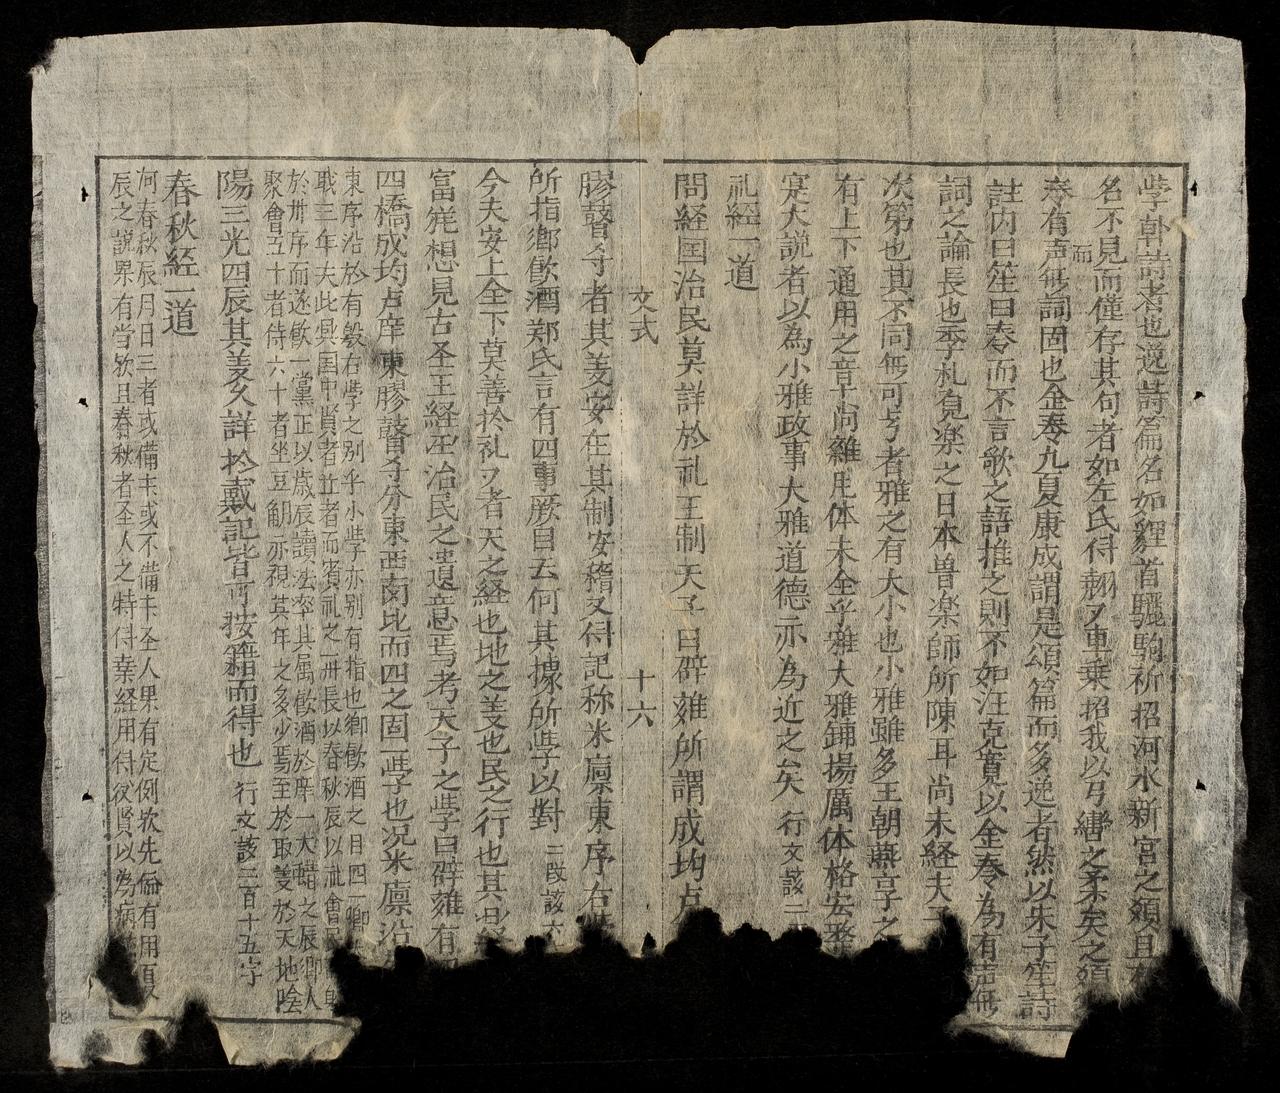 孝斈詩者也逸詩篇名如貍首驪駒祈招河水新宮之類且
名不見而僅存其句者如左氏淂翹〻車乗招我以弓轡之柔矣之類
而
奏有声無詞固也金奏九夏康成謂是頌篇而多逸者然以朱子笙詩
註内曰笙曰奏而不言歌之語推之則不如汪克寬以金奏為有声無
詞之論長也季札覔楽之日本魯楽師所陳耳尚未経夫子
次第也其不同無可号者雅之有大小也小雅雖多王朝燕享之
有上下通用之音十尚雜凡体未全乎雅大雅鋪揚厲体格宏整
寔大説者以為小雅政事大雅道德亦為近之矣 行文該二
礼経一道
問経囯治民莫詳於礼王制天子曰辟雍所謂成均卢
文式
十六
膠瞽寺者其羙安在其制安稽又淂記称米廪東序右斈
所指鄉飲酒郑氏言有四事厥目云何其據所斈以對 二段該六
今夫安上全下莫善扵礼〻者天之経也地之羙也民之行也其
富䍧想見古圣王経囯治民之遺意焉考天子之斈曰辟雍有
四橋成均卢庠東膠瞽寺分東西南北而四之固一斈也况米廪沿
東序沿於有殷右斈之别乎小斈亦别有指也鄉飲酒之目四一鄉
职三年大比與囯中賢者䏻者而賓礼之一州長以春秋辰以礼會民
於州序而遂飲一黨正以歳辰讀法率其属飲酒於庠一大蜡之辰鄉人
聚會五十者侍六十者坐豆觔亦視其年之多少焉至於取羙於天地陰
陽三光四辰其羙久詳扵戴記皆可按籍而得也 行文該三百十五字
春秋経一道
何春秋辰月日三者或備或不備圣人果有定例欤先儒有用夏
辰之説果有当欤且春秋者圣人之特淂𦯧経用淂後賢以為病